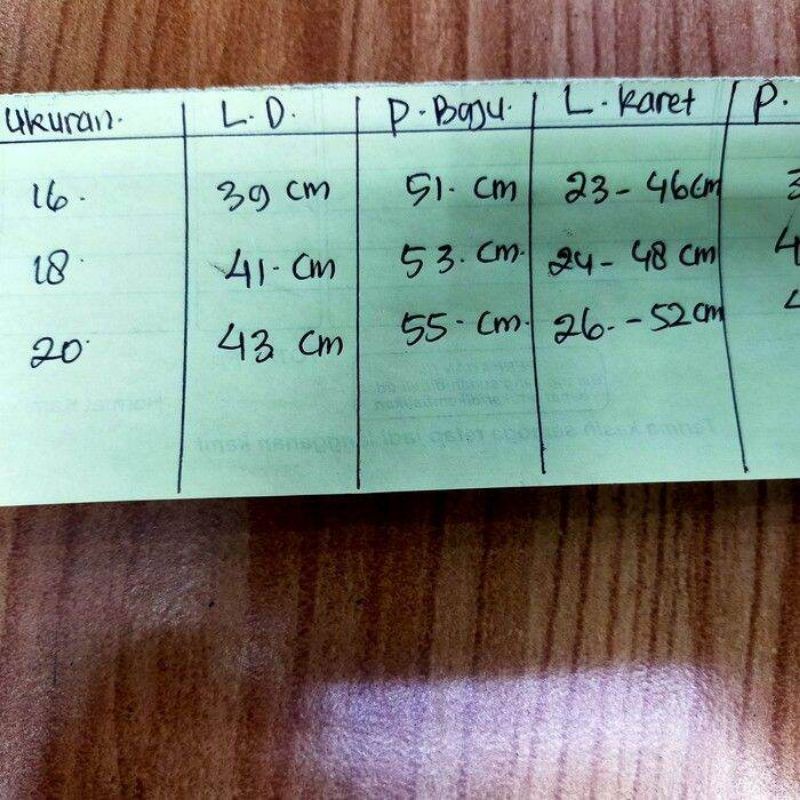 Ukuran. L.D. P.Baju. L.Karet P.
16. 39 cm 51. cm 23-46cm 3
18. 41. cm 53. cm. 24-48 cm 4
20. 43 cm 55. cm. 26.-52cm 4
Terima kasih semoga tetap jadi langganan kami